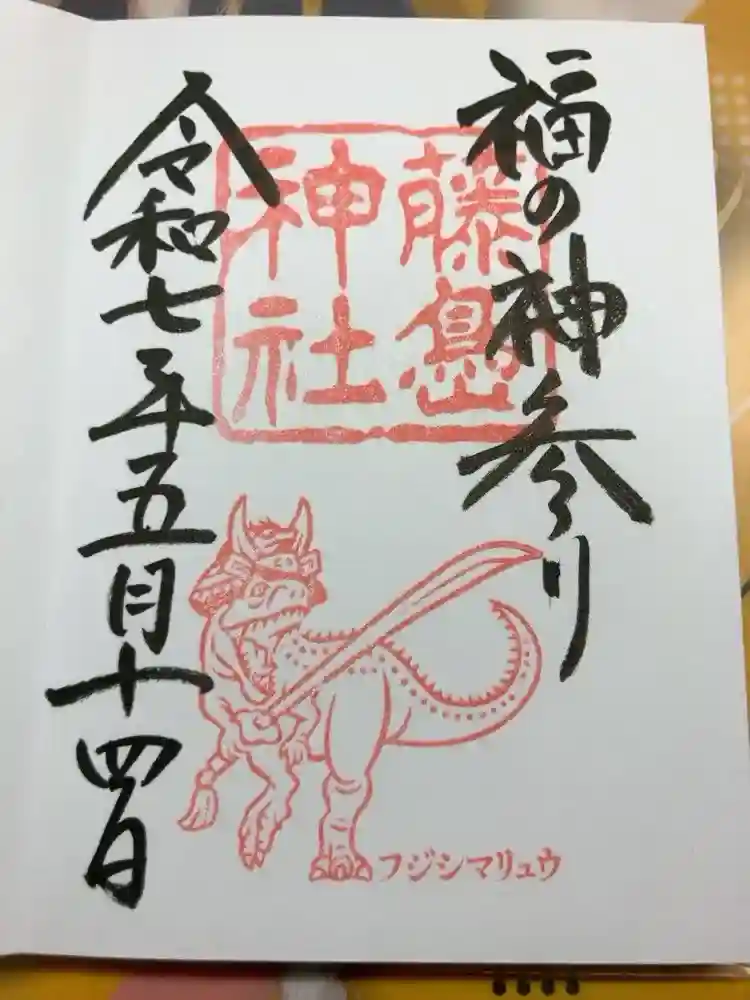 福の神参り
藤島
神社
令和七年五月十四日
フジシマリュウ